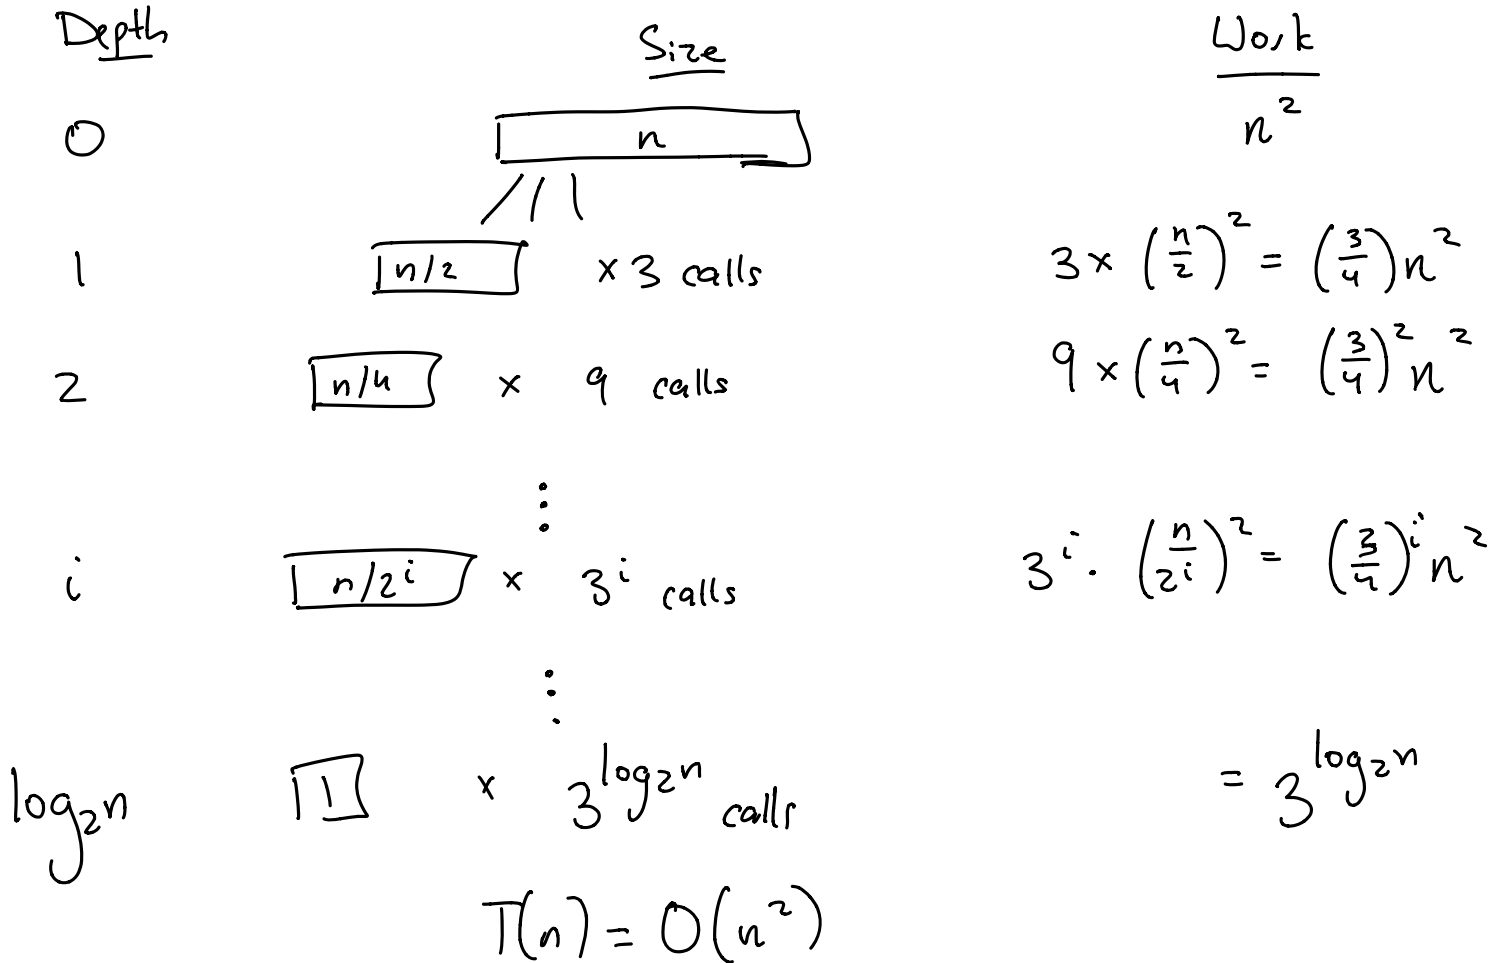 Depth Size Work
0 n n²
1 n/2 × 3 calls 3 × (n/2)² = (3/4)n²
2 n/4 × 9 calls 9 × (n/4)² = (3/4)² n²
⋮
i n/2^i × 3^i calls 3^i · (n/2^i)² = (3/4)^i n²
⋮
log₂n 1 × 3^(log₂n) calls = 3^(log₂n)
T(n) = O(n²)